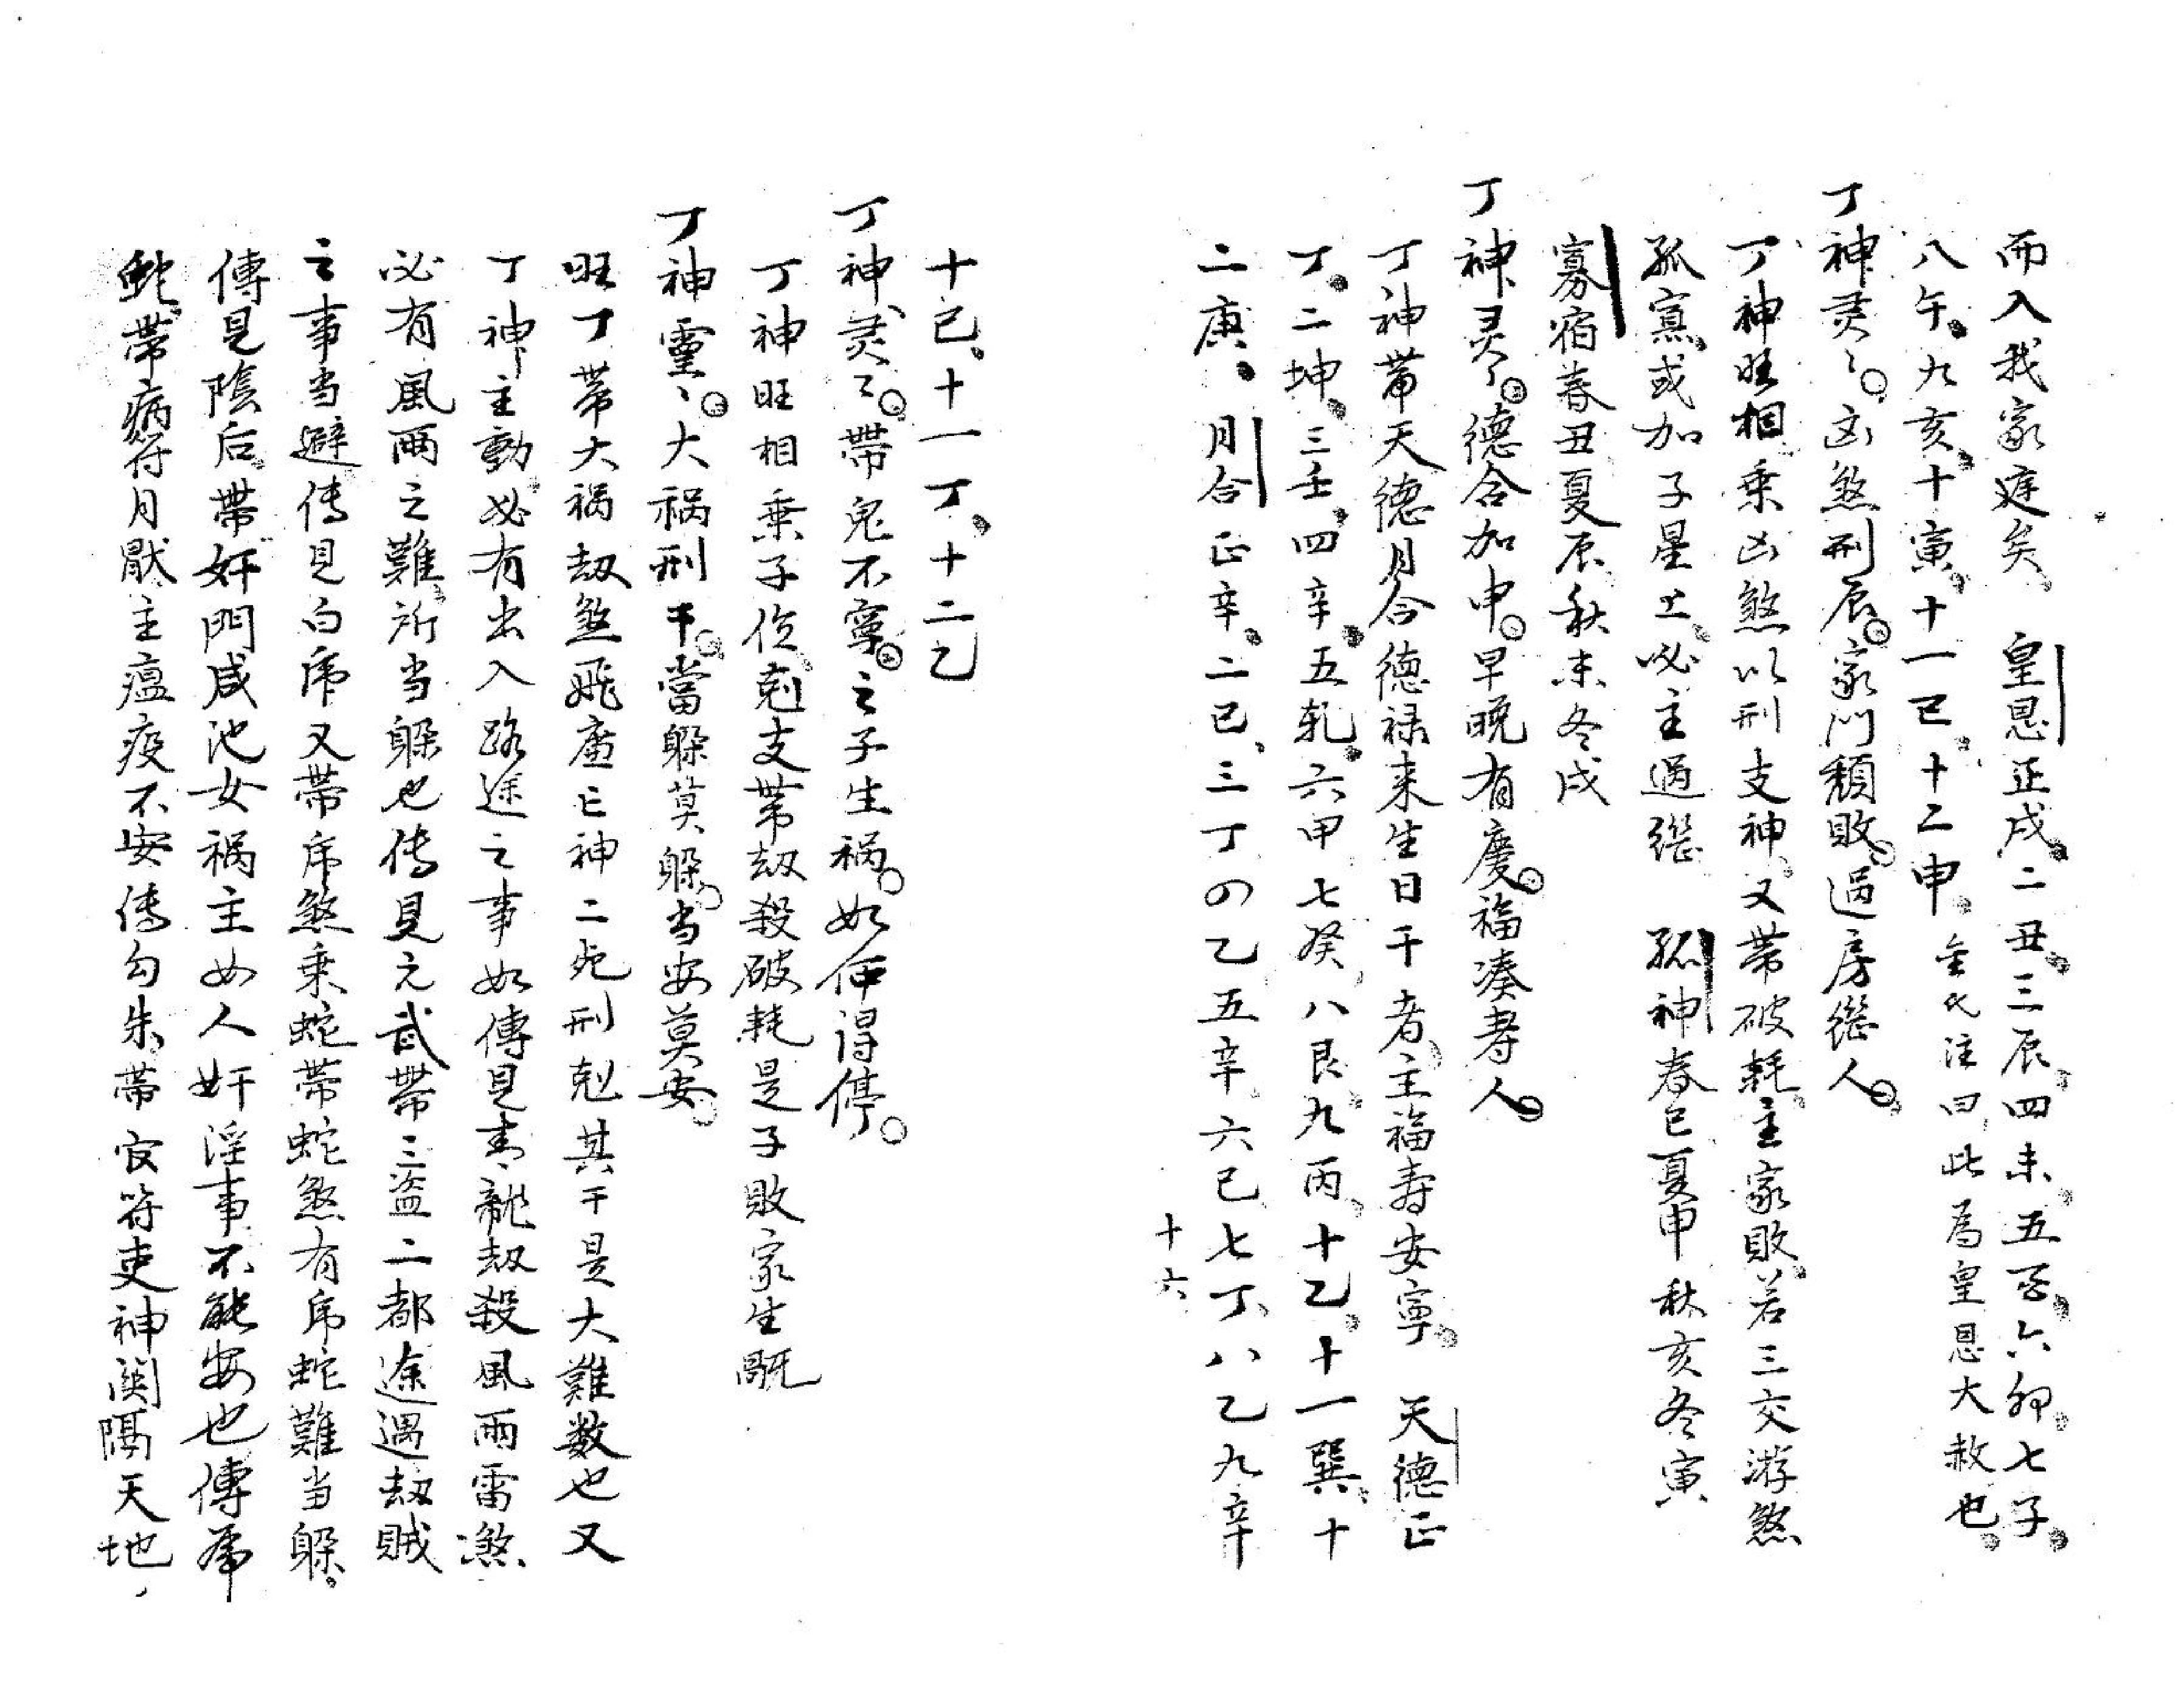 而入我家庭矣。皇恩正戌。二丑。三辰。四未。五酉。六卯。七子。
八午。九亥。十寅。十一巳。十二申。金氏注曰。此為皇恩大赦也。
丁神灵々。凶煞刑辰。家门頹敗。過房继人。
丁神旺相。乘凶煞以刑支神。又带破耗。主家敗。若三交游煞
孤寡。或加子星上。必主過継 孤神春巳夏申秋亥冬寅
寡宿春丑夏辰秋未冬戌
丁神灵々。德合加申。早晚有慶。福凑寿人。
丁神带天德月合德禄来生日干者。主福壽安寧。天德正
丁。二坤。三壬。四辛。五乹。六甲七癸。八艮。九丙。十乙。十一巽。十
二庚。月合正辛。二己、三丁の乙五辛。六己七丁、八乙九辛
十六
十己。十一丁。十二乙
丁神灵々。帶鬼不寧。之子生禍。如何得停。
丁神旺相乘子位剋支帶劫殺破耗是子敗家生既
丁神靈々。大禍刑干。當躲莫躲。当安莫安。
旺丁帶大禍劫煞飛廉亡神二死刑克其干是大難数也又
丁神主動。必有出入路途之事如傳見青龍劫殺風雨雷煞
必有風雨之難。所当躲也传見元武帶三盜二都途遇劫賊
之事当避传見白虎又帶虎煞乘蛇帶蛇煞有虎蛇難当躲。
傳見陰后。帶奸門咸池女禍主女人奸淫事不能安也傳虎
蛇。帶病符月厭主瘟疫不安传勾朱帶官符吏神関隔天地、